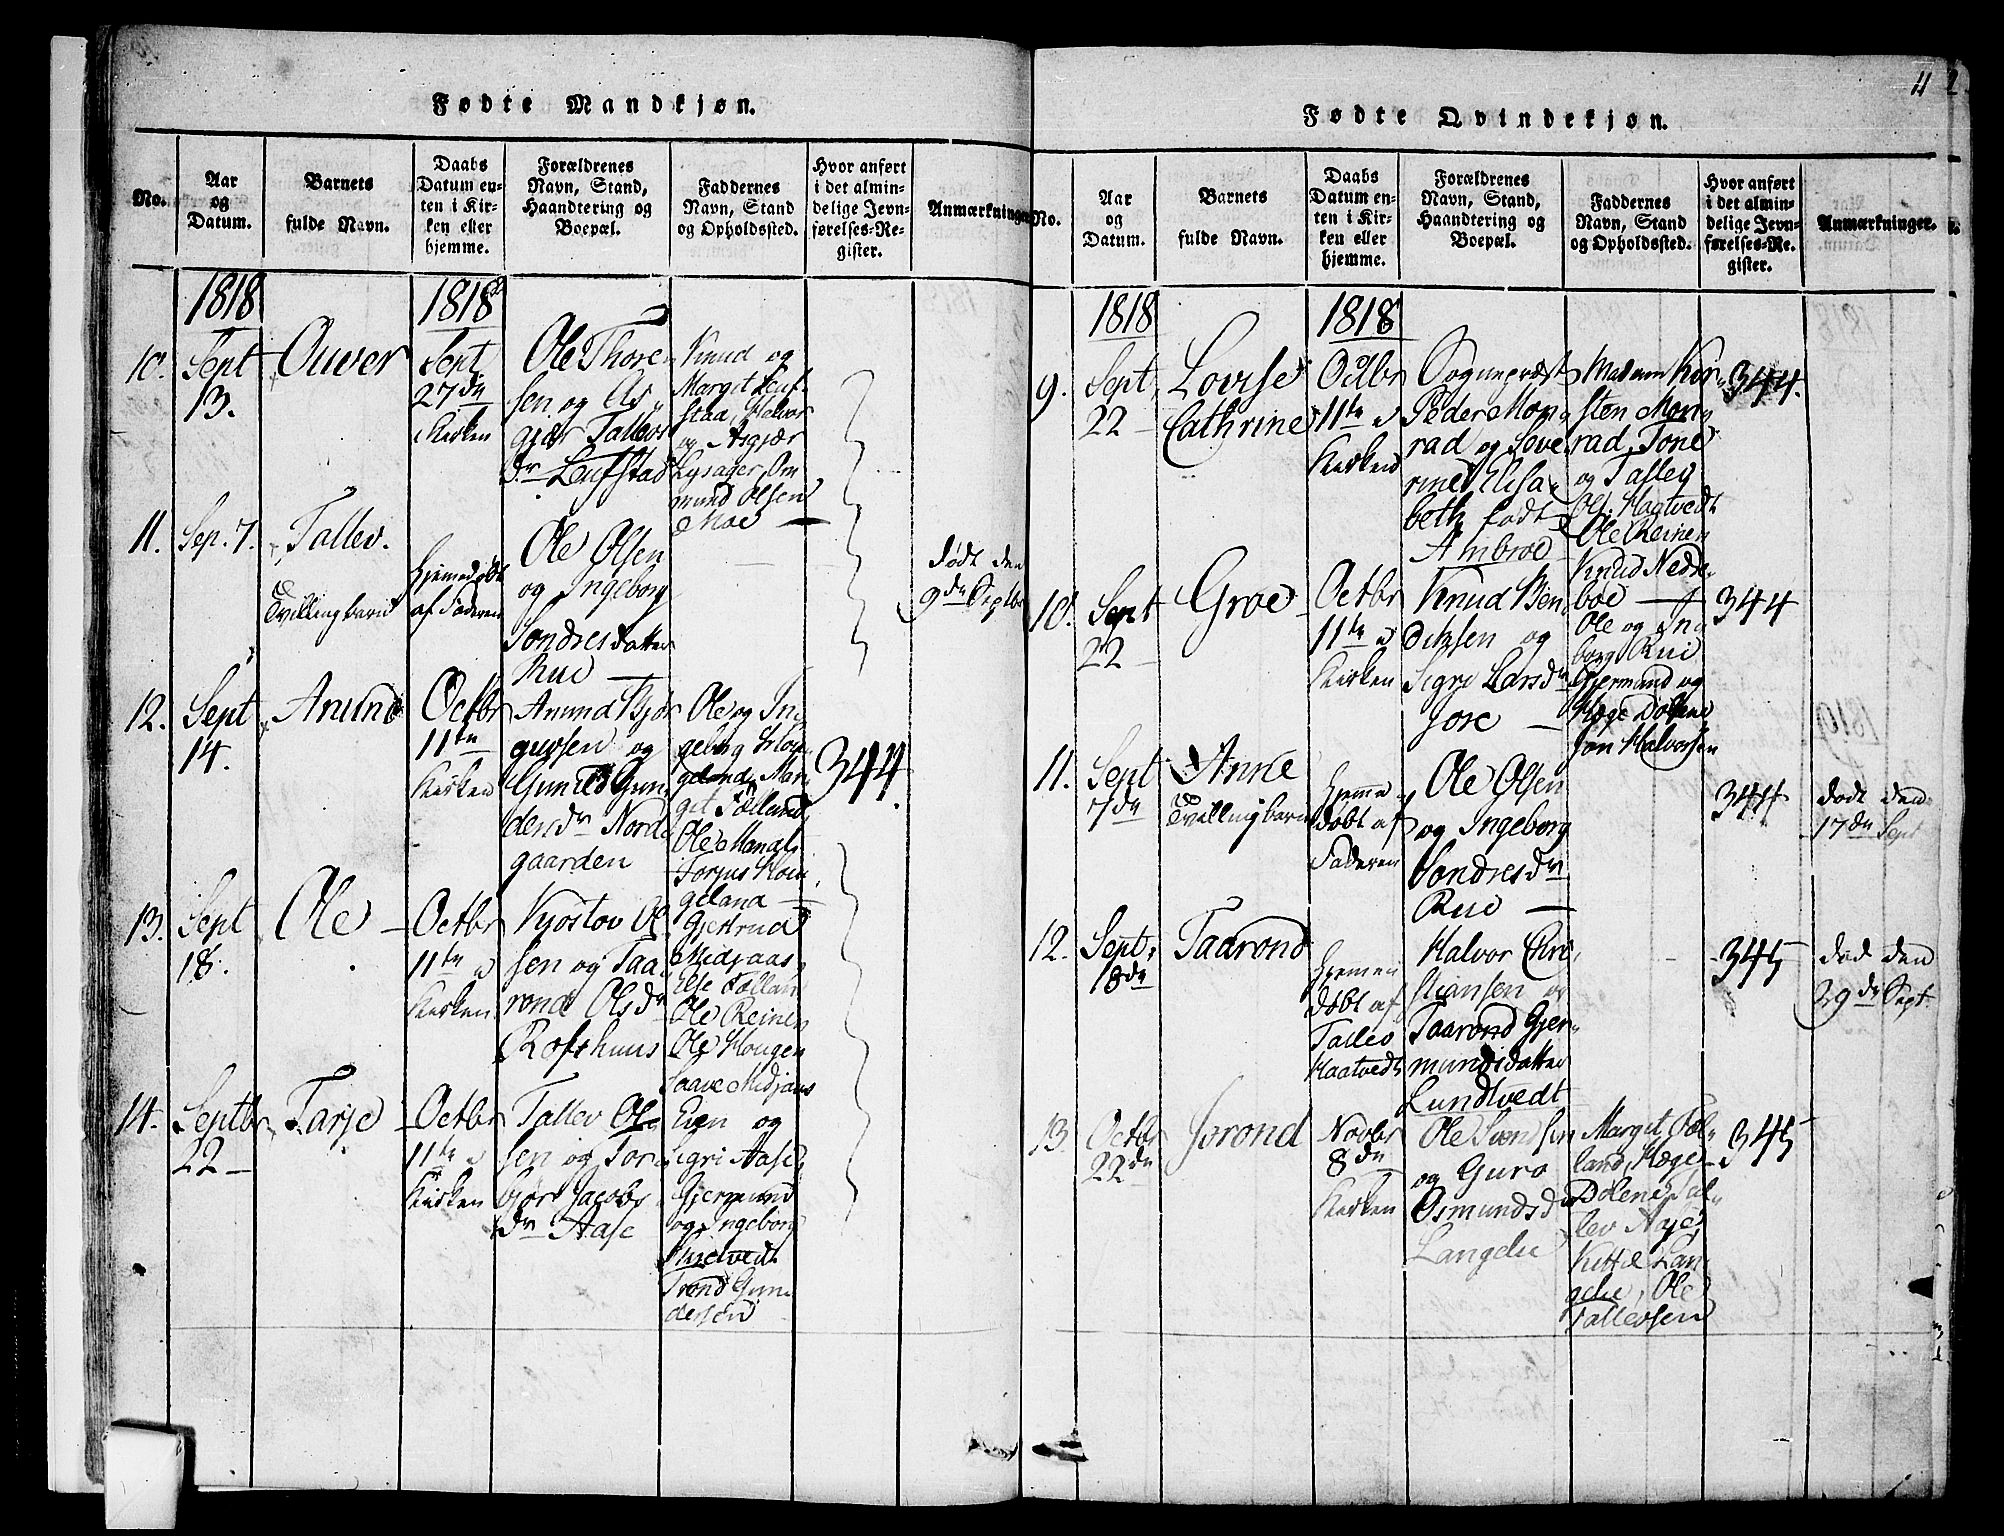 Fødte Mandkjøn.
No.
Aar
og
Datum.
Barnets
fulde Navn.
Daabs
Datum en-
ten i Kir-
ken eller
hjemme.
Forældrenes
Navn, Stand,
Haandtering og
Boepæl.
Faddernes
Navn, Stand
og Opholdssted.
Hvor anført
i det almin-
delige Jevn-
førelses-Re-
gister.
Anmærkninger
1818
1818
10.
Sept
13.
Ouver
Sept
27de
i Kirken
Ole Thore
sen og As,,
gjær Tallevs
dr Leufstad
Knud og
Margit Leuf-
staa, Halvor
og Asgjær
Lysager, Om
mund Olsen
Moe
11.
Sep. 7.
Tallev.
Tvillingbarn
Hjemedøbt
af Faderen
Ole Olsen
og Ingeborg
Sondresdatter
Rue
Født den
9de Septbr
12.
Sept
14.
Anund
Octbr
11te
Kirken
Anund Bjør
gufsen og
Gunild Gun-
dersdr Nord
gaarden
Ole og In
gebog Houn
geland, Mar-
git Følland
Ole Mandt
Torjus Houn
geland
344.
13.
Sept
18.
Ole
Octbr
11te i
Kirken
Kjøstov Ol
sen og Taa
rond Olsdr
Rofshuus
Gjertrud
Midjaas,
Else Følland
Ole Reinen
Ole Hougen
Saave Midjaas
14.
Septbr
22
Tarje
Octbr
11te i
Kirken
Tallev Ol
sen og Tor
bjør Jacobs
dr Aase
Even og
Sigri Aase,
Gjermund
og Ingeborg
Trond Gun
dersen
Fødte Qvindekjøn.
11
No.
Aar
og
Datum.
Barnets
fulde Navn.
Daabs
Datum en-
ten i Kir-
ken eller
hjemme.
Forældrenes
Navn, Stand,
Haandtering og
Boepæl.
Faddernes
Navn, Stand
og Opholdssted.
Hvor anført
i det almin-
delige Jevn-
førelses-Re-
gister.
Anmærkninger.
1818
1818
9.
Sept,
22
Lovise
Cathrine
Octbr
11te i
Kirken
Sognepræst
Peder Mon
rad og Seve
rine Elisa
beth født
Ambroe
Madam Kir
sten Mon
rad, Tone
og Tallev
Ols. Haatvedt
Ole Reinen
344.
10.
Sept
22
Groe
Octbr
11te i
Kirken
Knud Ben
dixsen og
Sigri Larsdr
Jore
Knud Nedre
boe
Ole og In
borg Rui
Gjermund og
Hæge Dolene
Jon Halvorsen
344
11.
Sept
7de
Anne
Tvillingbarn
Hjemme
døbt af
Faderen
Ole Olsen
og Ingeborg
Sondresdr
Rue
344
død den
17de Sept
12.
Sept,
18de
Taarond
Hjemen
døbt af
Tallev
Haatvedt
Halvor Chri
stiansen og
Taarond Gjer-
mundsdatter
Lundtvedt
345
død den
29de Sept
13
Octbr
22de
Jørond
Novbr
8de
Kirken
Ole Svendsen
og Guro
Osmundsd
Langelie
Margit Føl-
land, Hæge
Dolene, Tal-
lev Aase
Kittil Lan
gelie, Ole
Tallevsen
345